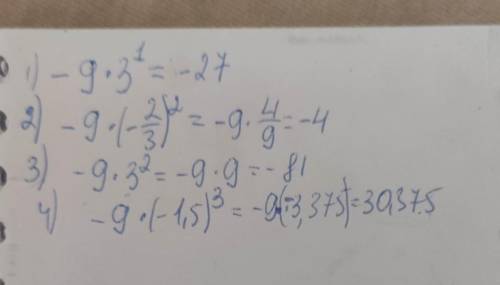 1) -9·3¹ = -27
2) -9·(-2/3)² = -9·4/9 = -4
3) -9·3² = -9·9 = -81
4) -9·(-1,5)³ = -9·(-3,375) = 30,375